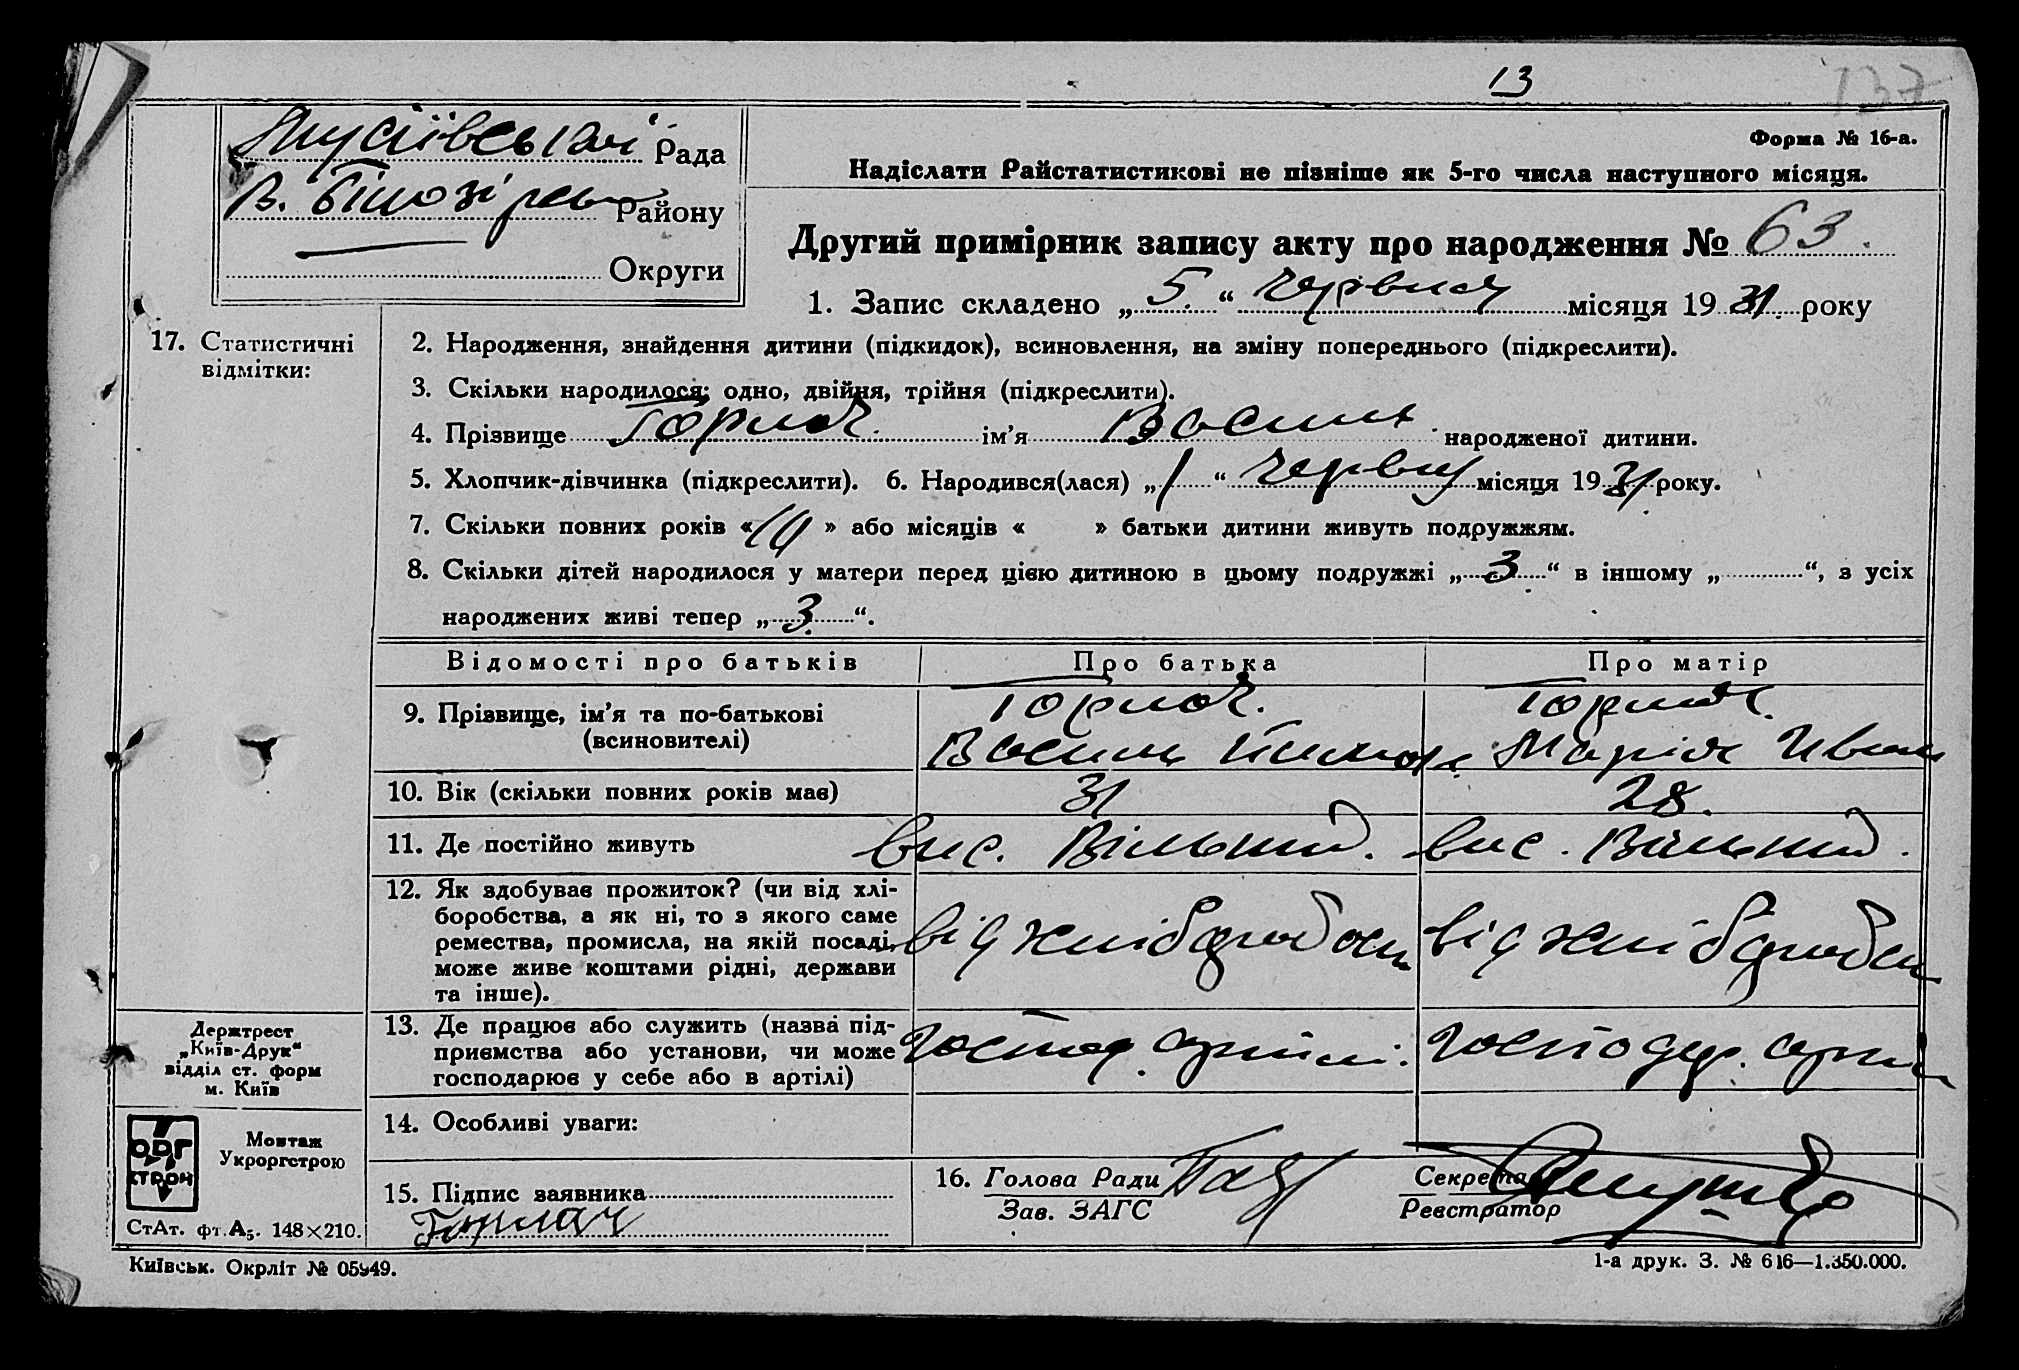 13
137
Рада
В. Білозірсько Району
Округи
Форма № 16-а.
Надіслати Райстатистикові не пізніше як 5-го числа наступного місяця.
Другий примірник запису акту про народження № 63.
1. Запис складено „ 5. “ червня місяця 19 31 року
17. Статистичні
відмітки:
2. Народження, знайдення дитини (підкидок), всиновлення, на зміну попереднього (підкреслити).
3. Скільки народилося: одно, двійня, трійня (підкреслити).
4. Прізвище Горлач. ім’я Василь народженої дитини.
5. Хлопчик-дівчинка (підкреслити). 6. Народився(лася) „ 1 “ червня місяця 19 31 року.
7. Скільки повних років « 10 » або місяців « » батьки дитини живуть подружжям.
8. Скільки дітей народилося у матери перед цією дитиною в цьому подружжі „ 3 “ в іншому „ “, з усіх
народжених живі тепер „ 3. “.
Відомості про батьків Про батька Про матір
9. Прізвище, ім’я та по-батькові
(всиновителі)
Горлач. Горлач.
Василь Марія Иван
10. Вік (скільки повних років має) 31 28.
11. Де постійно живуть вис. Вільний. вис. Вільний.
12. Як здобуває прожиток? (чи від хлі-
боробства, а як ні, то з якого саме
ремества, промисла, на якій посаді,
може живе коштами рідні, держави
та інше).
від хліборобси від хліборобси
13. Де працює або служить (назва під-
приємства або установи, чи може
господарює у себе або в артілі)
господ. артілі. господар. арти
14. Особливі уваги:
15. Підпис заявника
Горлач
16. Голова Ради
Зав. ЗАГС
Секретар
Реєстратор
Держтрест
„Київ-Друк“
відділ ст. форм
м. Київ
ОРГ
СТРОЙ
Монтаж
Укроргстрою
СтАт. фт. А₅. 148×210.
Київськ. Окрліт № 05949.
1-а друк. З. № 616—1.350.000.